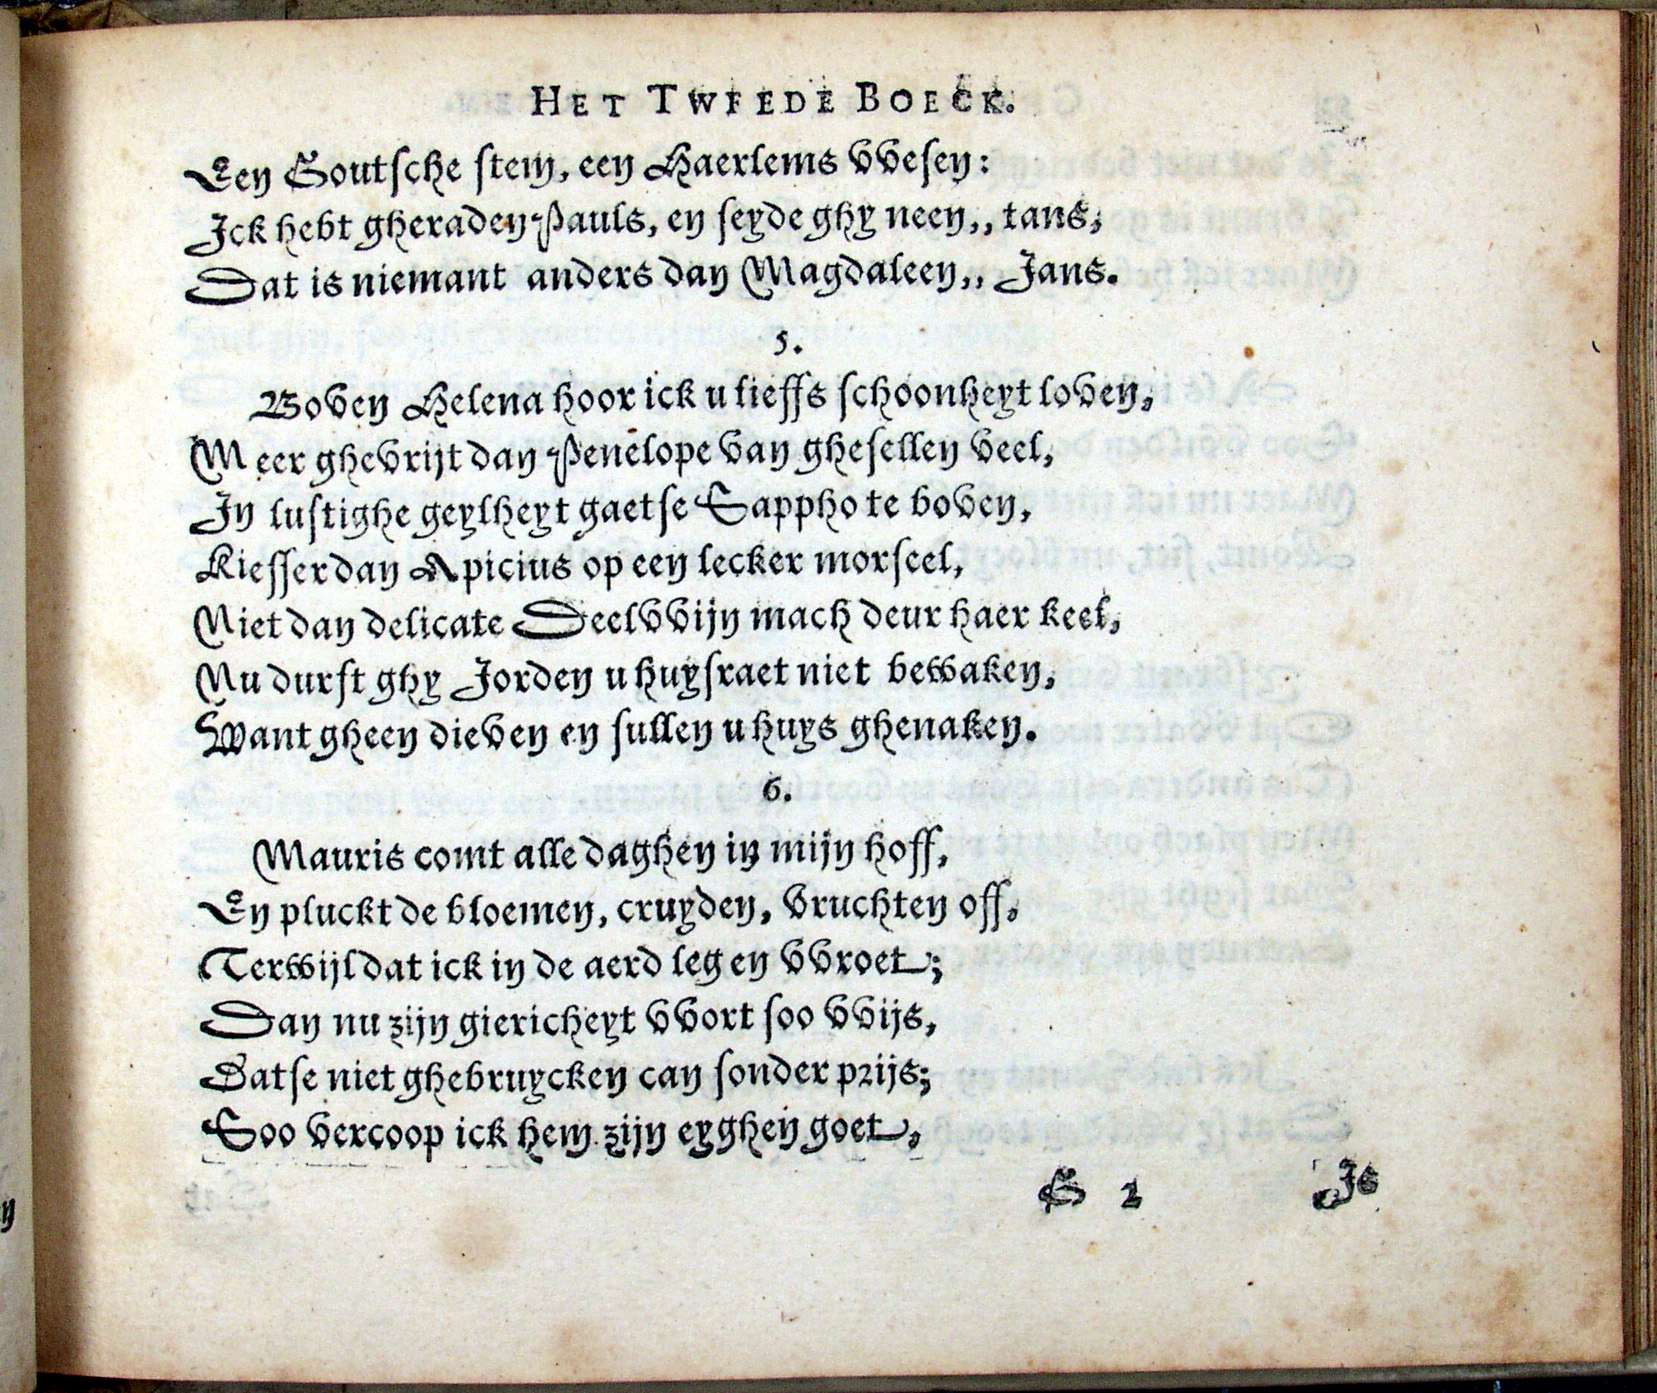 HET TWEEDE BOECK.
Een Goutsche stem, een Haerlems vvesen:
Ick hebt gheraden Pauls, en seyde ghy neen,, tans,
Dat is niemant anders dan Magdaleen,, Jans.
5.
Boven Helena hoor ick u lieffs schoonheyt loven,
Meer ghevrijt dan Penelope van ghesellen veel,
In lustighe geylheyt gaetse Sappho te boven,
Kiesser dan Apicius op een lecker morseel,
Niet dan delicate Deelvvijn mach deur haer keel,
Nu durft ghy Jorden u huysraet niet bewaken,
Want gheen dieven en sullen u huys ghenaken.
6.
Mauris comt alle daghen in mijn hoff,
En pluckt de bloemen, cruyden, vruchten off,
Terwijl dat ick in de aerd leg en vvroet;
Dan nu zijn giericheyt vvort soo vvijs,
Datse niet ghebruycken can sonder prijs;
Soo vercoop ick hem zijn eyghen goet,
G 2 Is